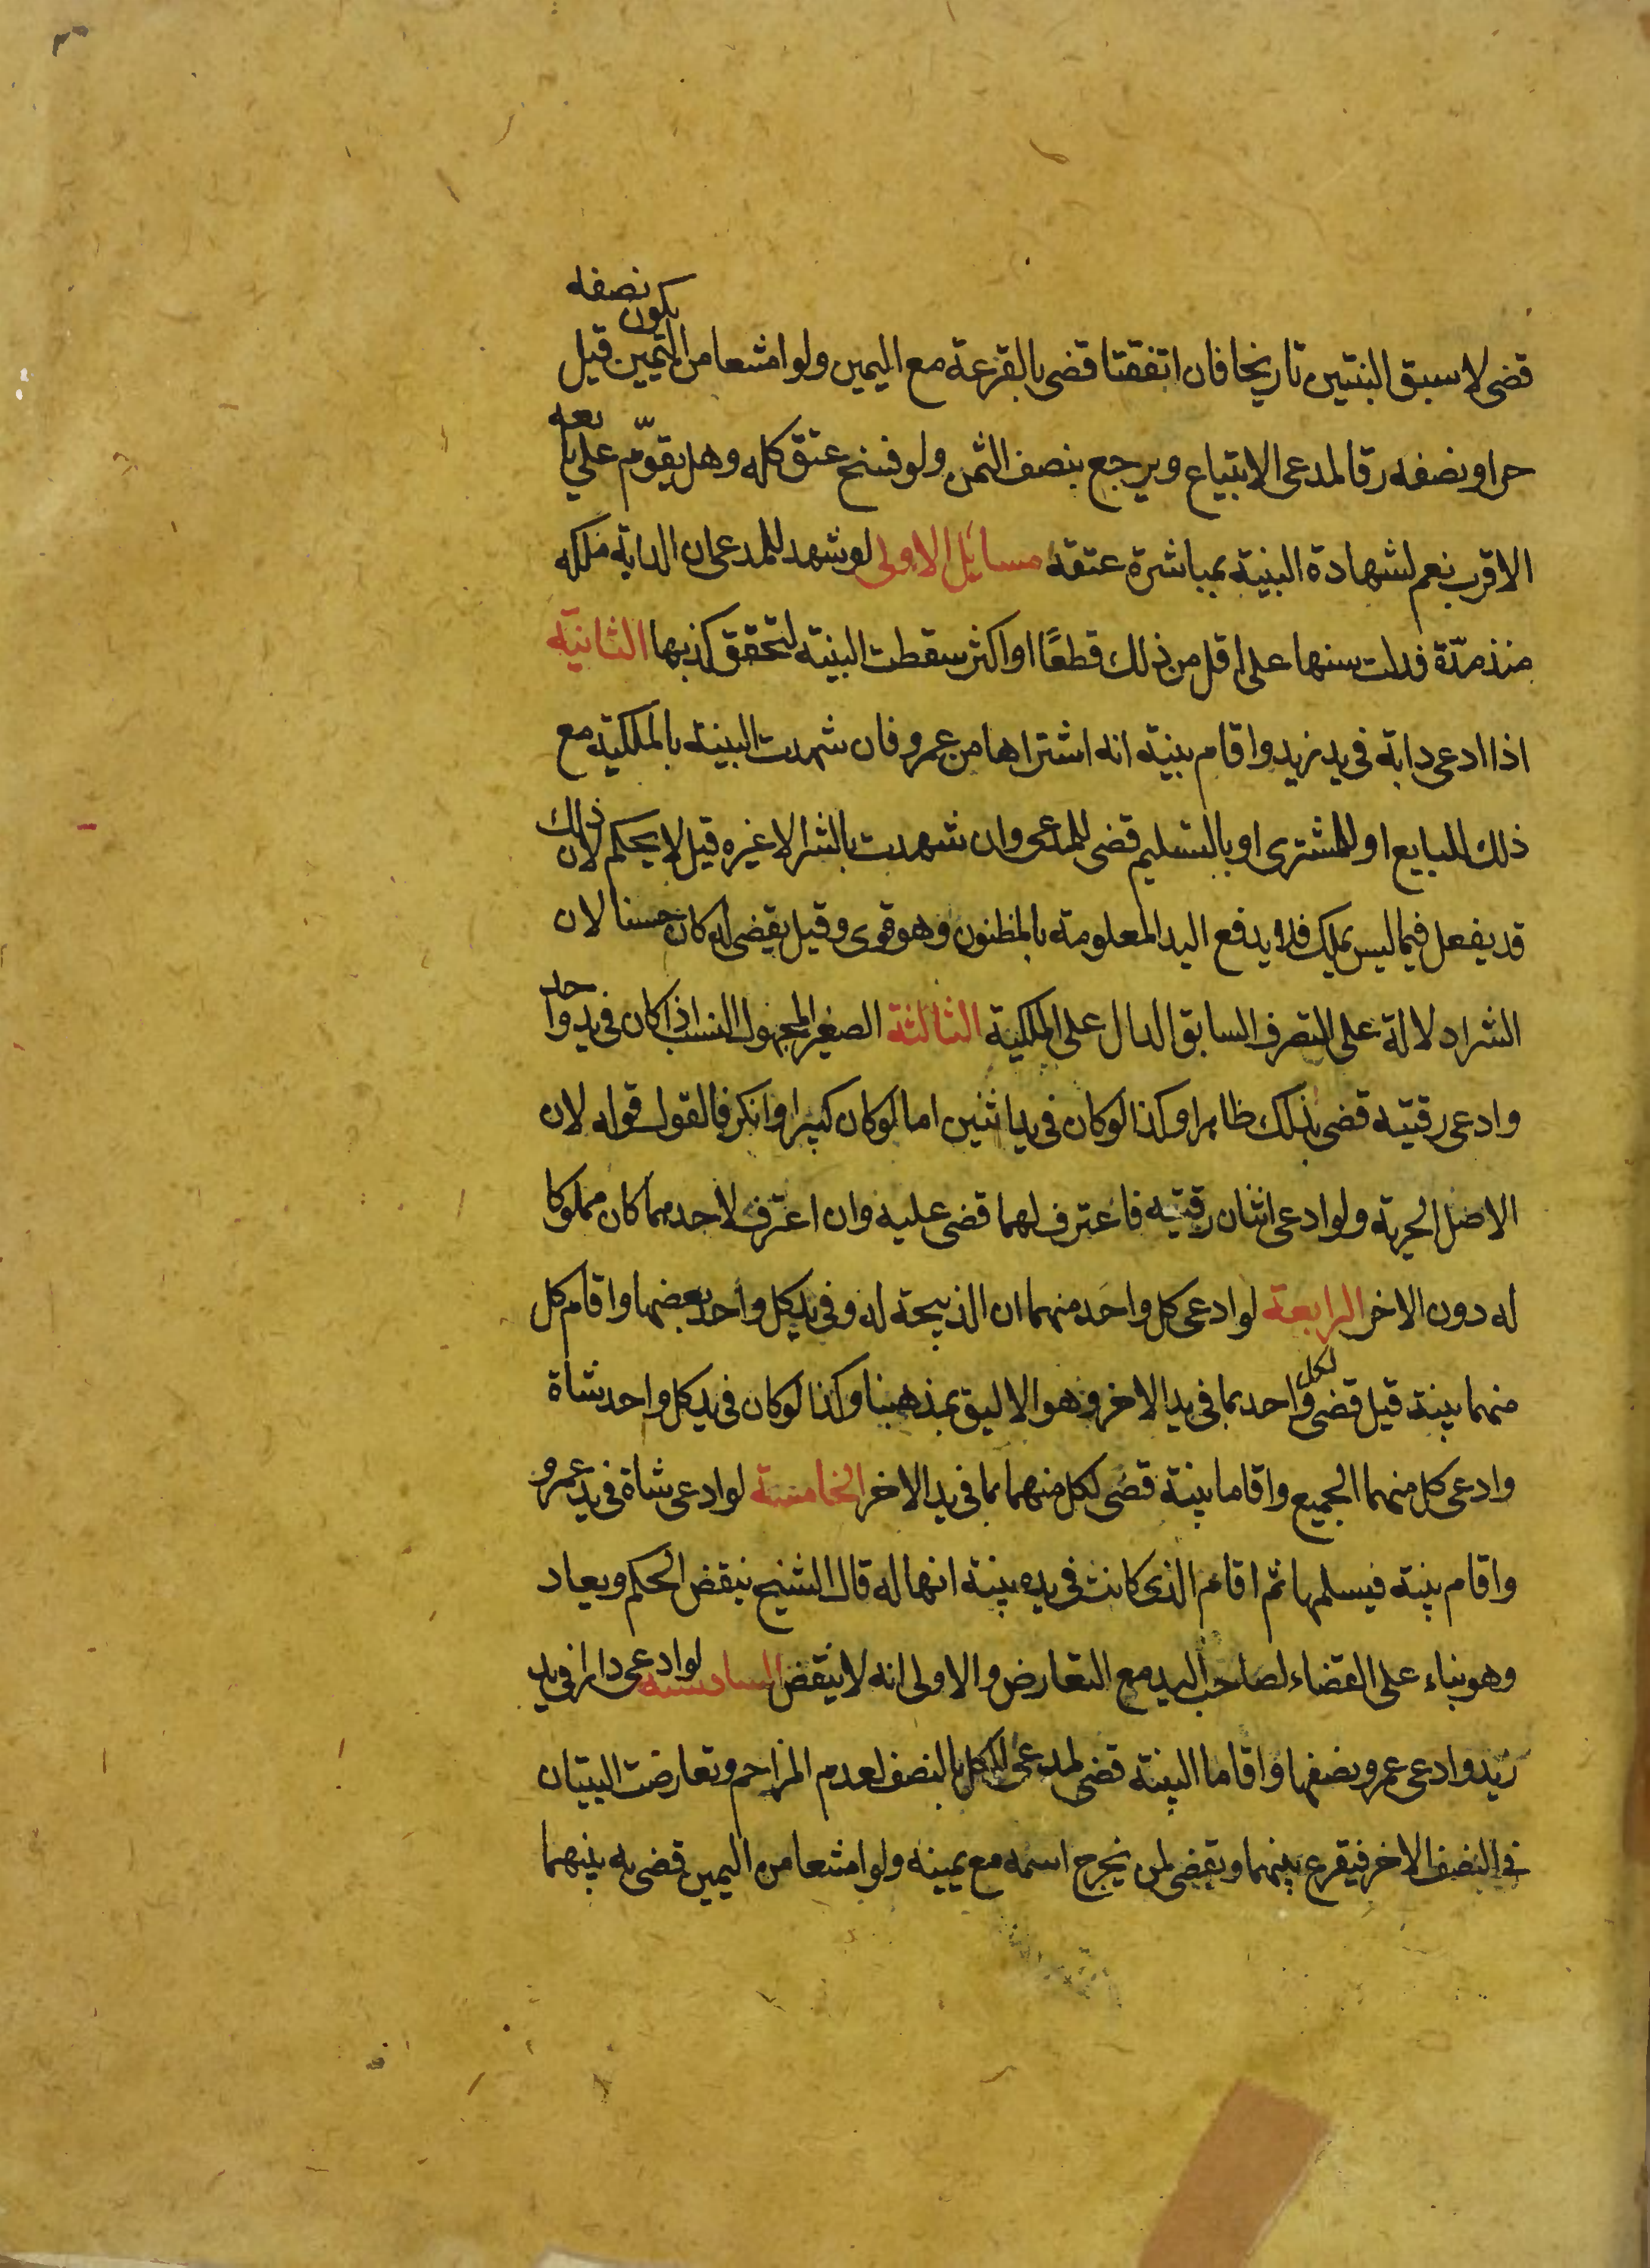 قضى لاسبق البنتين تاريخا فان اتفقتا قضى بالقرعة مع اليمين ولو امتنعا من اليمين قيل يكون نصفه
حرا ونصفه رقا لمدعى الابتياع ويرجع بنصف الثمن ولو فسخ عتق كله وهل يقوّم على بايعه
الاقرب نعم لشهادة البينة بمباشرة عتقه مسايل الاولى لو شهد للمدعى ان الدابة ملكه
منذ مدّة فدلت سنها على اقل من ذلك قطعًا او اكثر سقطت البينة لتحقق كذبها الثانية
اذا ادعى دابة فى يد زيد واقام بينة انه اشتراها من عمرو فان شهدت البينة بالملكية مع
ذلك للبايع او للمشترى او بالتسليم قضى للمدعى وان شهدت بالشرا لا غيره قيل لا يحكم لان ذلك
قد يفعل فيما ليس بملك فلا يدفع اليد المعلومة بالمظنون وهو قوى وقيل يقضى له كان حسنا لان
الشرا دلالة على التصرف السابق الدال على الملكية الثالثة الصغير المجهول النسب اذا كان فى يد واحد
وادعى رقيته قضى بذلك ظاهرا وكذا لو كان فى يد اثنين اما لو كان كبيرا وانكر فالقول قوله لان
الاصل الحرية ولو ادعى اثنان رقيته فاعترف لهما قضى عليه وان اعترف لاحدهما كان مملوكا
له دون الاخر الرابعة لو ادعى كل واحد منهما ان الذبيحة له وفى يد كل واحد بعضها واقام كل
منهما بينة قيل قضى لكل واحد بما فى يد الاخر وهو الاليق بمذهبنا وكذا لو كان فى يد كل واحد شاة
وادعى كل منهما الجميع واقاما بينة قضى لكل منهما بما فى يد الاخر الخامسة لو ادعى شاة فى يد عمرو
واقام بينة فيسلمها ثم اقام الذى كانت فى يده بينة انها له قال الشيخ ينقض الحكم ويعاد
وهو بناء على القضاء لصاحب اليد مع التعارض والاولى انه لا ينقض السادسة لو ادعى دارا فى يد
زيد وادعى عمرو نصفها واقاما البينة قضى لمدعى الكل بالنصف لعدم المزاحم وتعارضت البينتان
فى النصف الاخر فيقرع بينهما ويقضى لمن يخرج اسمه مع يمينه ولو امتنعا من اليمين قضى به بينهما